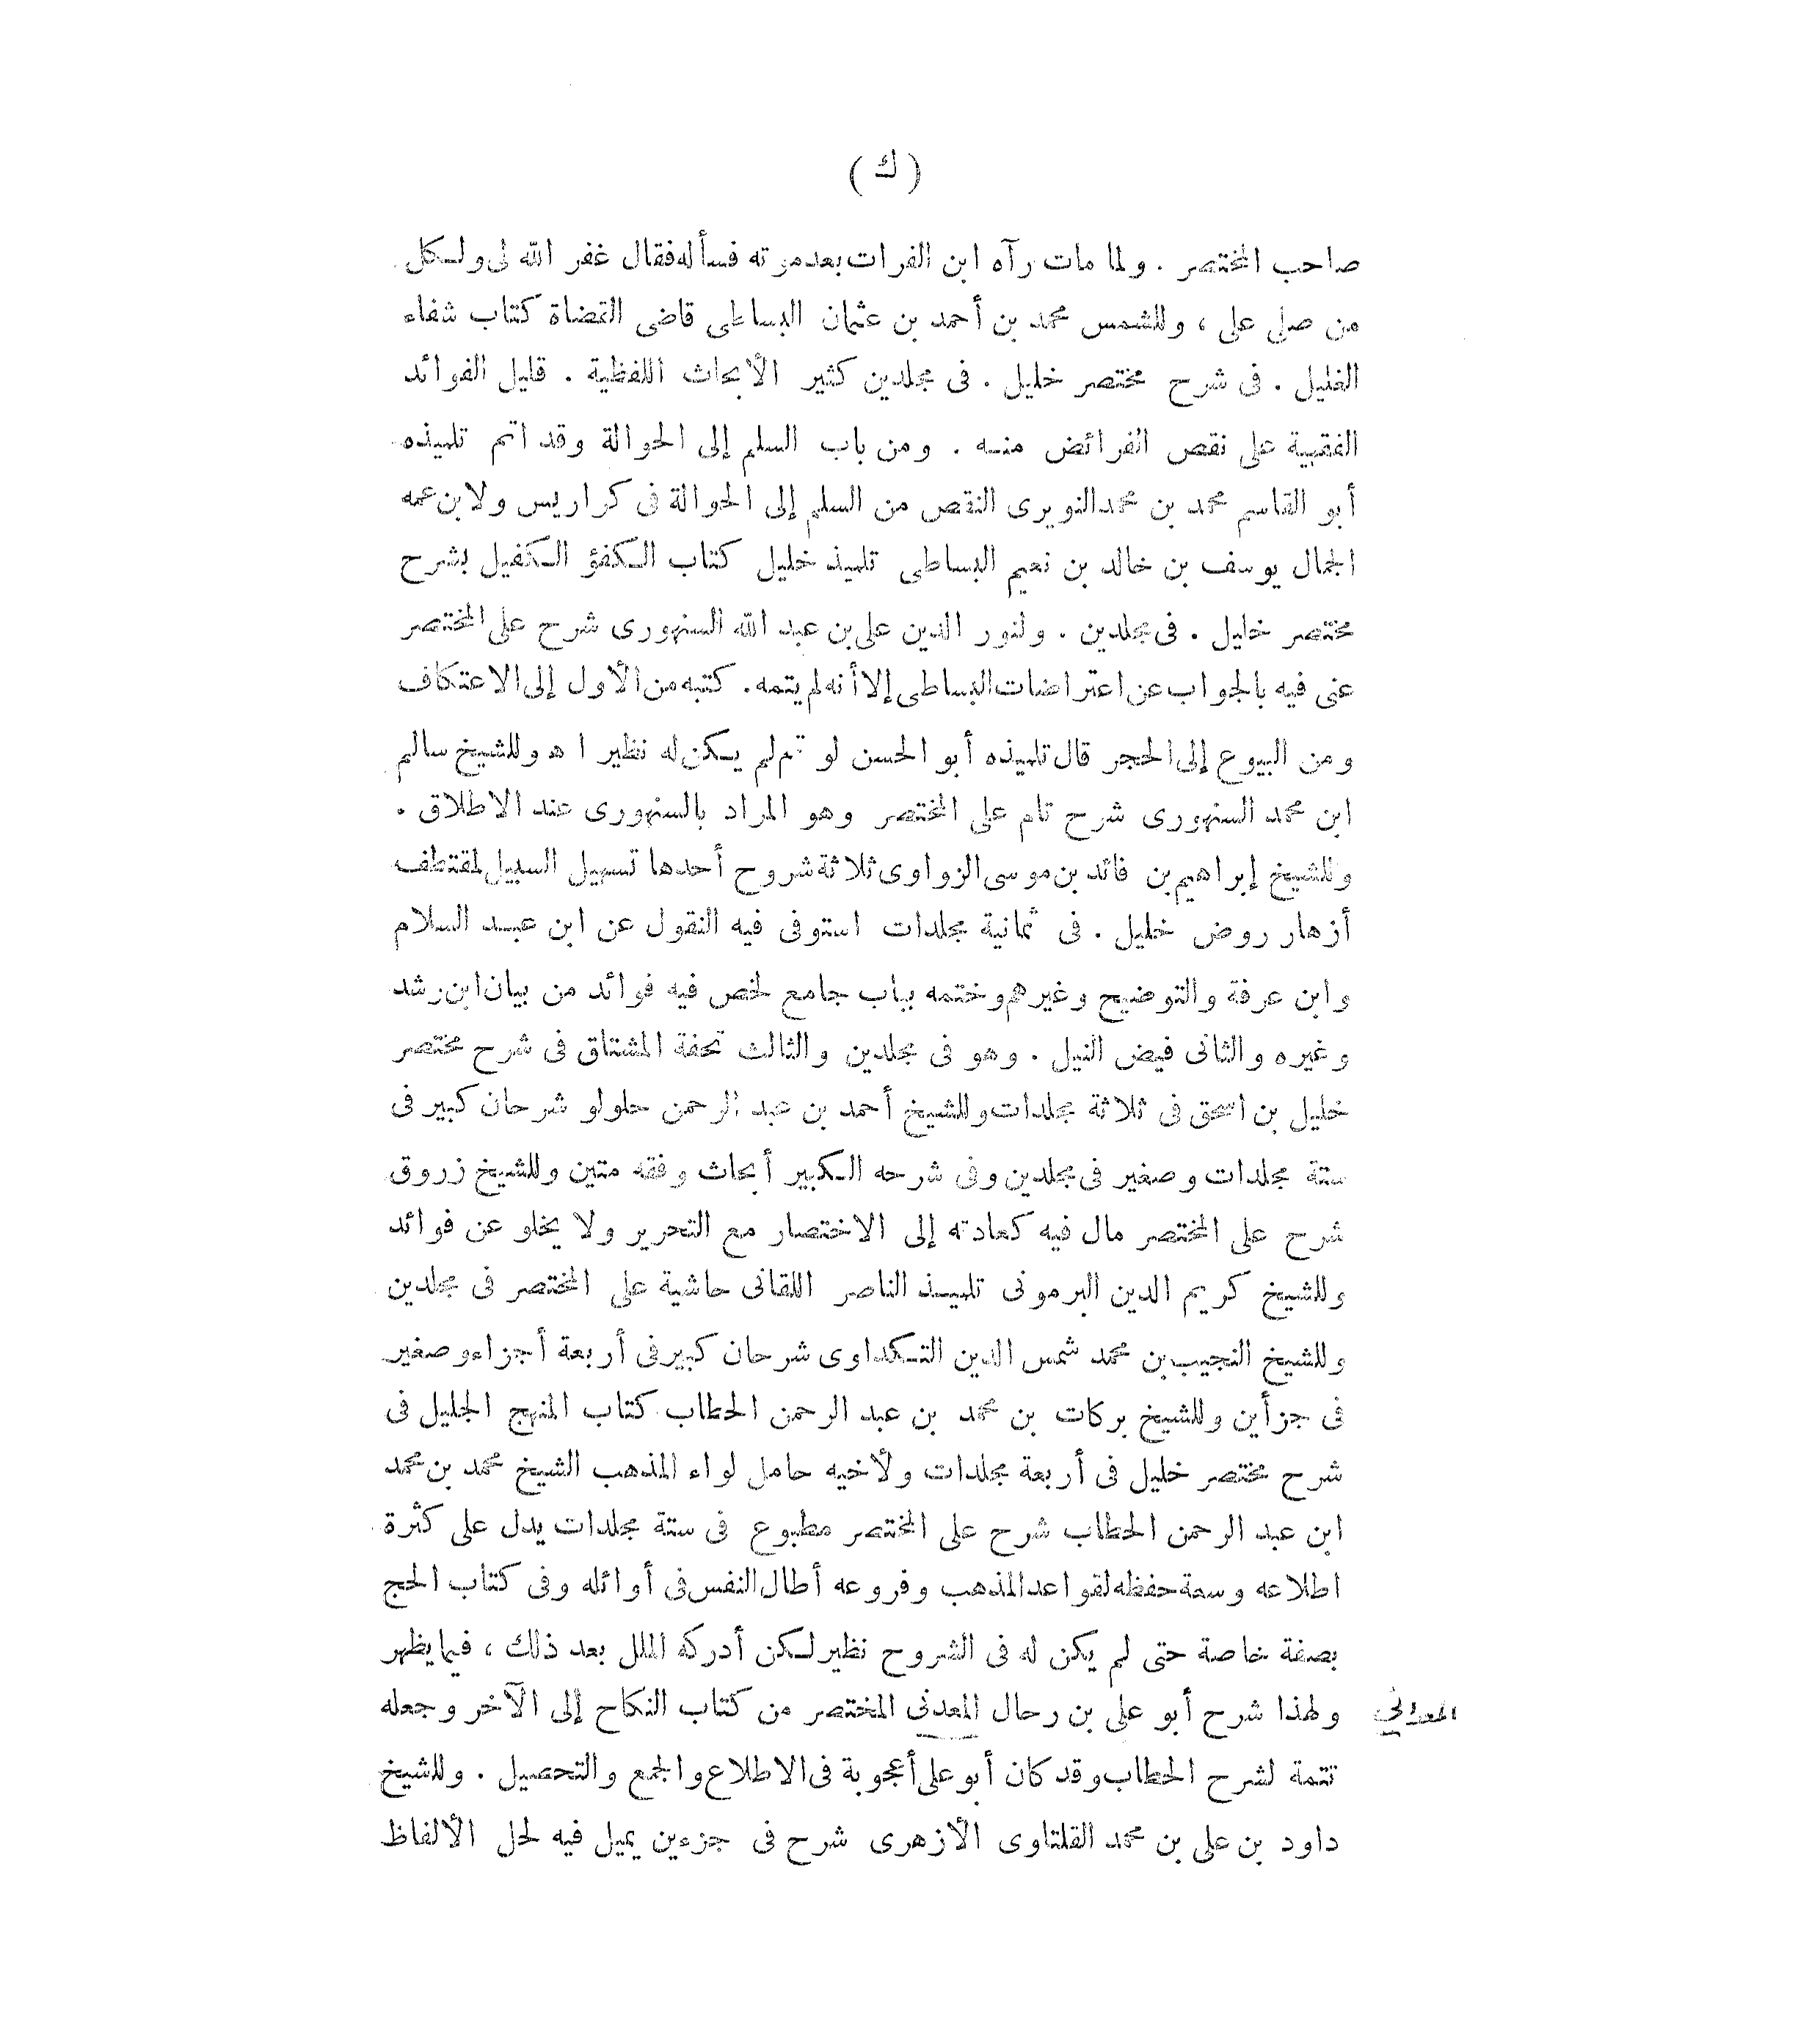 ( ك )
صاحب المختصر . ولما مات رآه ابن الفرات بعد موته فسأله فقال غفر الله لى ولكل
من صلى على ، وللشمس محمد بن أحمد بن عثمان البساطى قاضى القضاة كتاب شفاء
الغليل . فى شرح مختصر خليل . فى مجلدين كثير الأبحاث اللفظية . قليل الفوائد
الفقهية على نقص الفرائض منه . ومن باب السلم إلى الحوالة وقد اتم تلميذه
أبو القاسم محمد بن محمد النويرى النقص من السلم إلى الحوالة فى كراريس ولابن عمه
الجمال يوسف بن خالد بن نعيم البساطى تلميذ خليل كتاب الكفؤ الكفيل بشرح
مختصر خليل . فى مجلدين . ولنور الدين على بن عبد الله السنهورى شرح على المختصر
عنى فيه بالجواب عن اعتراضات البساطى إلا أنه لم يتمه . كتبه من الأول إلى الاعتكاف
ومن البيوع إلى الحجر قال تلميذه أبو الحسن لو تم لم يكن له نظير اه وللشيخ سالم
ابن محمد السنهورى شرح تام على المختصر وهو المراد بالسنهورى عند الاطلاق .
وللشيخ إبراهيم بن فائد بن موسى الزواوى ثلاثة شروح أحدها تسهيل السبيل لمقتطف
أزهار روض خليل . فى ثمانية مجلدات استوفى فيه النقول عن ابن عبد السلام
وابن عرفة والتوضيح وغيرهم وختمه بباب جامع لخص فيه فوائد من بيان ابن رشد
وغيره والثانى فيض النيل . وهو فى مجلدين والثالث تحفة المشتاق فى شرح مختصر
خليل بن اسحق فى ثلاثة مجلدات وللشيخ أحمد بن عبد الرحمن حلولو شرحان كبير فى
ستة مجلدات وصغير فى مجلدين وفى شرحه الكبير أبحاث وفقه متين وللشيخ زروق
شرح على المختصر مال فيه كعادته إلى الاختصار مع التحرير ولا يخلو عن فوائد
وللشيخ كريم الدين البرمونى تلميذ الناصر اللقانى حاشية على المختصر فى مجلدين
وللشيخ النجيب بن محمد شمس الدين التكداوى شرحان كبير فى أربعة أجزاء وصغير
فى جزأين وللشيخ بركات بن محمد بن عبد الرحمن الحطاب كتاب المنهج الجليل فى
شرح مختصر خليل فى أربعة مجلدات ولأخيه حامل لواء المذهب الشيخ محمد بن محمد
ابن عبد الرحمن الحطاب شرح على المختصر مطبوع فى ستة مجلدات يدل على كثرة
اطلاعه وسعة حفظه لقواعد المذهب وفروعه أطال النفس فى أوائله وفى كتاب الحج
بصفة خاصة حتى لم يكن له فى الشروح نظير لكن أدركه الملل بعد ذلك ، فيما يظهر
ولهذا شرح أبو على بن رحال المعدنى المختصر من كتاب النكاح إلى الآخر وجعله
المعدانى
تتمة لشرح الحطاب وقد كان أبو على أعجوبة فى الاطلاع والجمع والتحصيل . وللشيخ
داود بن على بن محمد القلتاوى الأزهرى شرح فى جزءين يميل فيه لحل الألفاظ